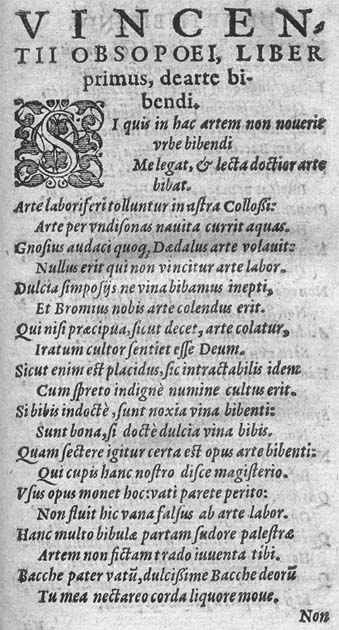 VINCEN-
TII OBSOPOEI, LIBER
primus, dearte bi-
bendi.
SI quis in hac artem non nouerit
vrbe bibendi
Me legat, & lecta doctior arte
bibat.
Arte laboriferi tolluntur in astra Collossi:
Arte per vndisonas nauita currit aquas.
Gnosius audaci quoq; Dædalus arte volauit:
Nullus erit qui non vincitur arte labor.
Dulcia simposijs ne vina bibamus inepti,
Et Bromius nobis arte colendus erit.
Qui nisi præcipua, sicut decet, arte colatur,
Iratum cultor sentiet esse Deum.
Sicut enim est placidus, sic intractabilis idem
Cum spreto indignè numine cultus erit.
Si bibis indoctè, sunt noxia vina bibenti:
Sunt bona, si doctè dulcia vina bibis.
Quam sectere igitur certa est opus arte bibenti:
Qui cupis hanc nostro disce magisterio.
Vsus opus monet hoc: vati parete perito:
Non fluit hic vana falsus ab arte labor.
Hanc multo bibulæ partam sudore palestræ
Artem non fictam trado iuuenta tibi.
Bacche pater vatū, dulcißime Bacche deorū
Tu mea nectareo corda liquore moue.
Non